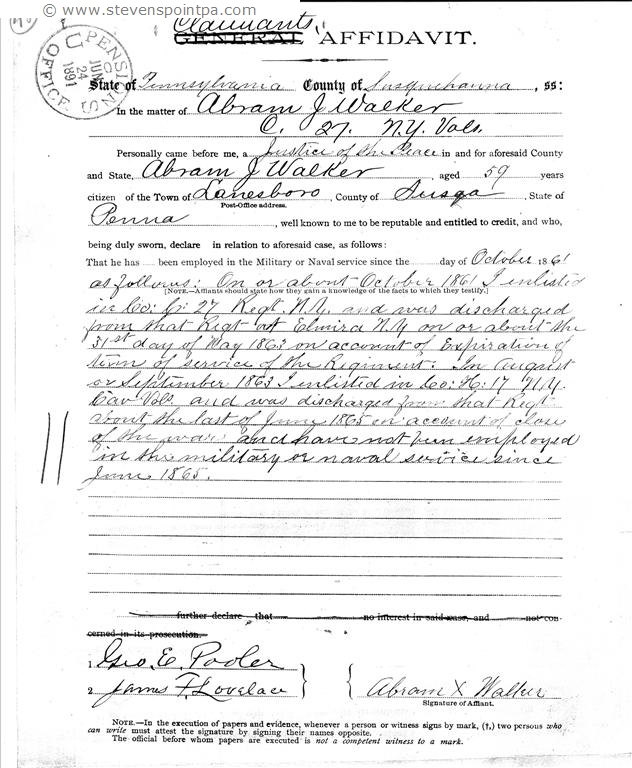 © www.stevenspointpa.com
Claimants
GENERAL AFFIDAVIT.
PENSION OFFICE
U S
JUN
24
1891
State of Pennsylvania County of Susquehanna, ss:
In the matter of Abram J Walker
C. 27. N.Y. Vols.
Personally came before me, a Justice of the Peace in and for aforesaid County
and State, Abram J Walker aged 59 years
citizen of the Town of Lanesboro, County of Susqa, State of
Post-Office address.
Penna, well known to me to be reputable and entitled to credit, and who,
being duly sworn, declare in relation to aforesaid case, as follows:
That he has been employed in the Military or Naval service since the day of October 1861
as follows: On or about October 1861 I enlisted
[NOTE.—Affiants should state how they gain a knowledge of the facts to which they testify.]
in Co: G: 27 Regt. N.Y. and was discharged
from that Regt at Elmira N.Y on or about the
31st day of May 1863 on account of Expiration of
term of service of the Regiment. In August
or September 1863 I enlisted in Co: H: 17 N.Y.
Cav Vols. and was discharged from that Regt
about the last of June 1865 on account of close
of the war and have not been employed
in the military or naval service since
June 1865.
further declare that no interest in said case, and not con-
cerned in its prosecution.
1 Geo. E. Pooler
2 James T. Lovelace
Abram X Walker
Signature of Affiant.
NOTE.—In the execution of papers and evidence, whenever a person or witness signs by mark, (†,) two persons who
can write must attest the signature by signing their names opposite.
The official before whom papers are executed is not a competent witness to a mark.